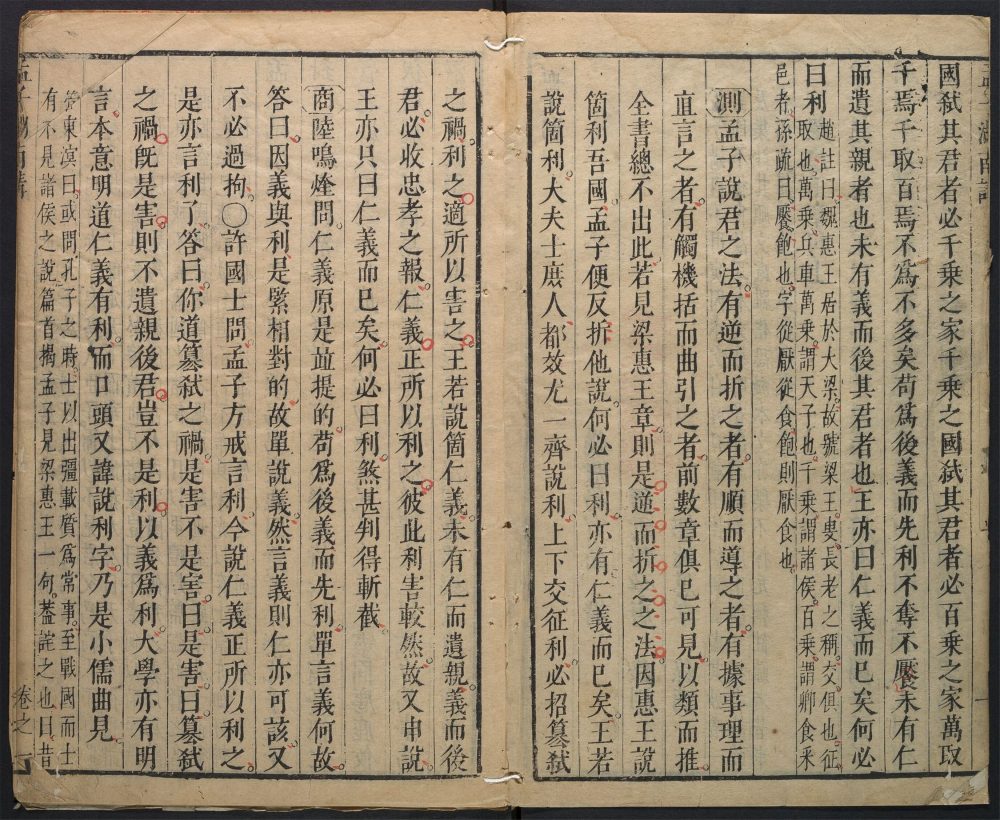 國弑其君者必千乘之家千乘之國弑其君者必百乘之家萬取
千焉千取百焉不爲不多矣苟爲後義而先利不奪不饜未有仁
而遺其親者也未有義而後其君者也王亦曰仁義而已矣何必
曰利
趙註曰魏惠王居於大梁故號梁王叟長老之稱交俱也征
取也萬乘兵車萬乘謂天子也千乘謂諸侯百乘謂卿食采
邑者孫疏曰饜飽也字從厭從食飽則厭食也
測孟子說君之法有逆而折之者有順而導之者有據事理而
直言之者有觸機括而曲引之者前數章俱已可見以類而推
全書總不出此若見梁惠王章則是逆而折之之法因惠王說
箇利吾國孟子便反折他說何必曰利亦有仁義而已矣王若
說箇利大夫士庶人都效尤一齊說利上下交征利必招簒弑
之禍利之適所以害之王若說箇仁義未有仁而遺親義而後
君必收忠孝之報仁義正所以利之彼此利害較然故又申說
王亦只曰仁義而已矣何必曰利煞甚判得斬截
商陸鳴煃問仁義原是並提的苟爲後義而先利單言義何故
答曰因義與利是緊相對的故單說義然言義則仁亦可該又
不必過拘○許國士問孟子方戒言利今說仁義正所以利之
是亦言利了答曰你道簒弑之禍是害不是害曰是害曰簒弑
之禍旣是害則不遺親後君豈不是利以義爲利大學亦有明
言本意明道仁義有利而口頭又諱說利字乃是小儒曲見
答東溟曰或問孔子之時士以出疆載質爲常事至戰國而士
有不見諸侯之說篇首揭孟子見梁惠王一句蓋詫之也曰昔
卷之一